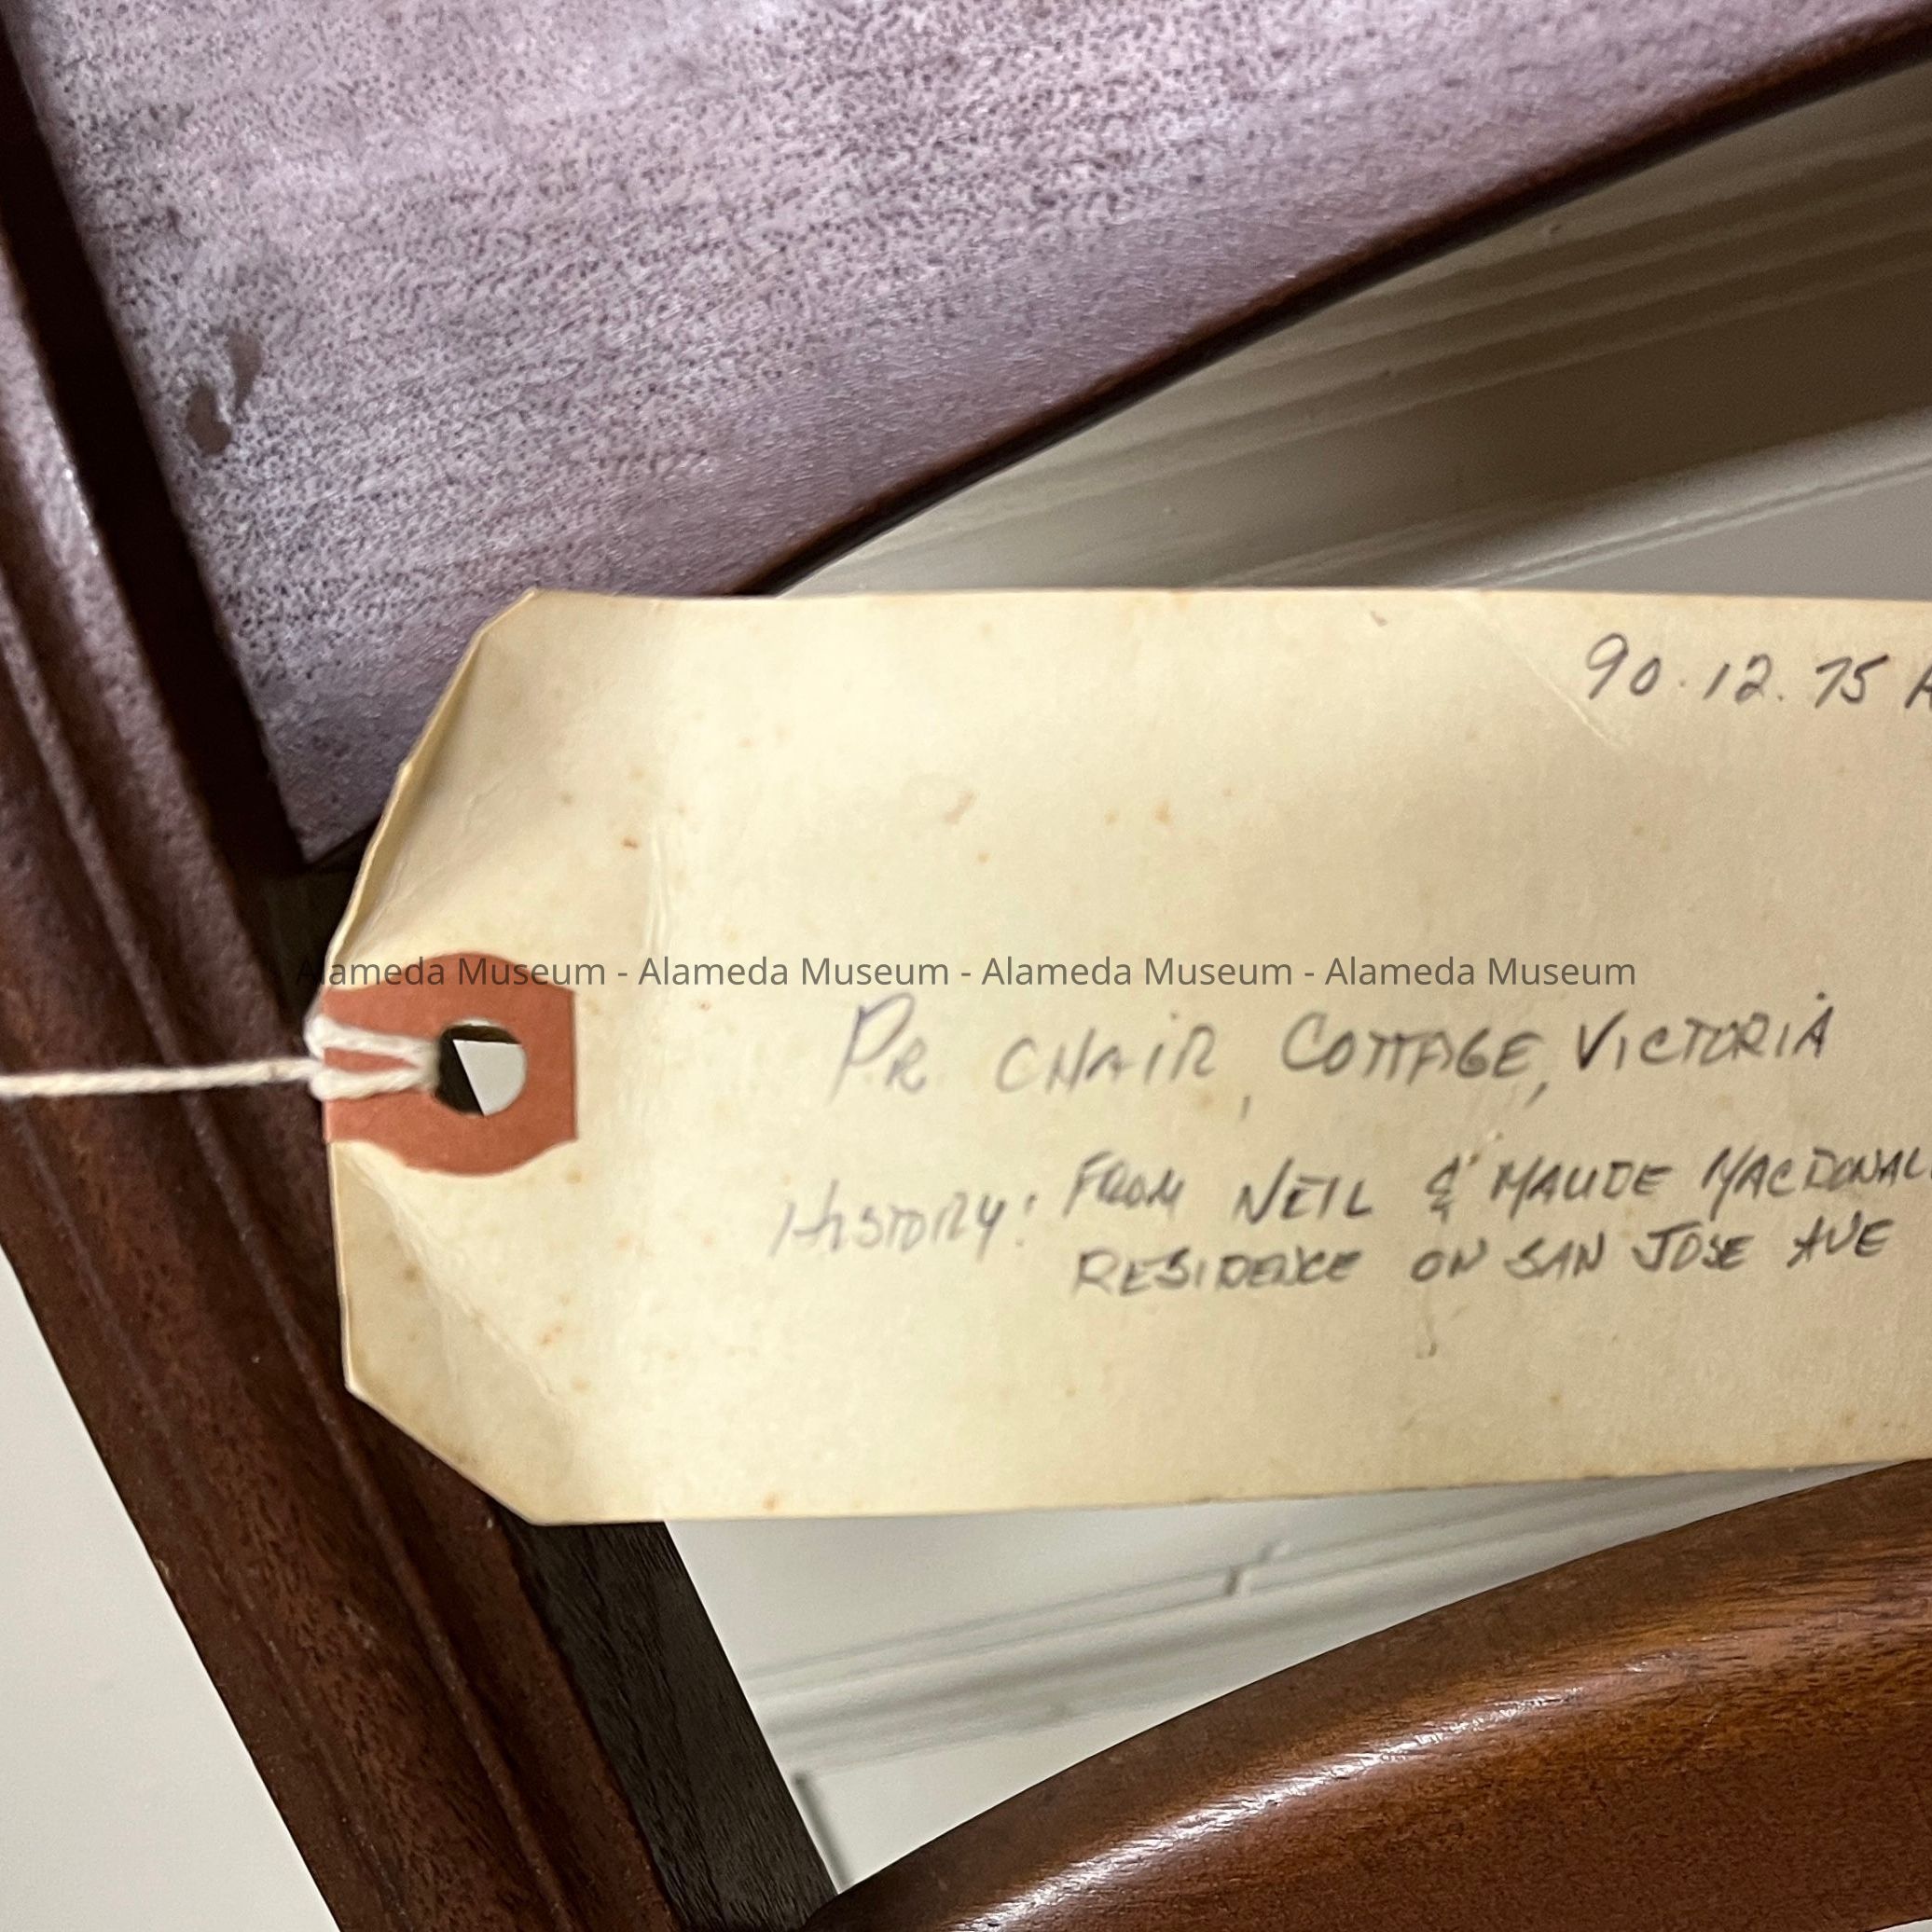 90.12.75 A
Alameda Museum - Alameda Museum - Alameda Museum - Alameda Museum
PR CHAIR, COTTAGE, VICTORIA
HISTORY: FROM NEIL & MAUDE MACDONAL
RESIDENCE ON SAN JOSE AVE